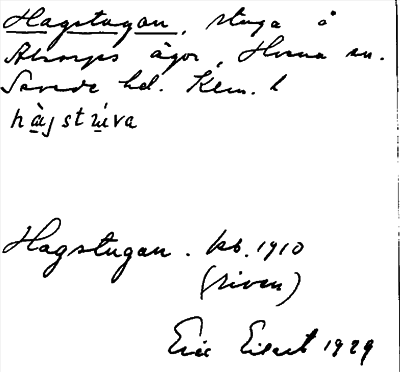 Hagstugan, stuga å
Ahorps ägor, Horna sn.
hd. Kem. l
hàjstúva
Hagstugan. kb. 1910
(riven)
Eric Eilert 1929